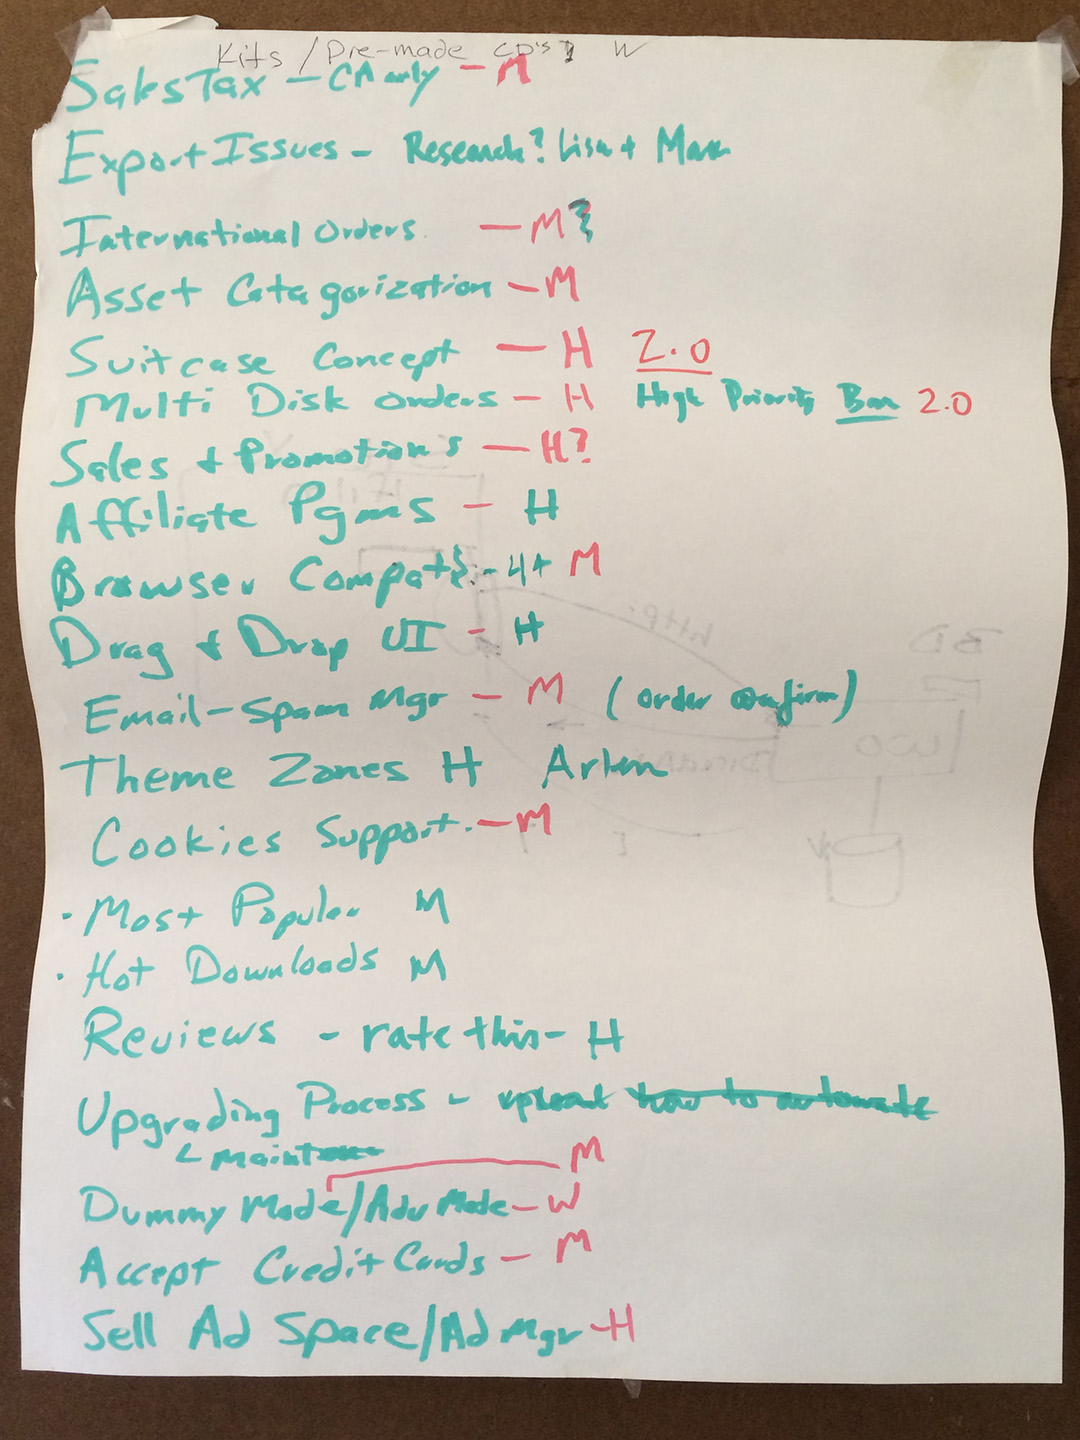 Kits / Pre-made CD's? W
Sales Tax - CA only - M
Export Issues - Research? Lisa + Max
International Orders - M?
Asset Catagorization - M
Suitcase Concept - H 2.0
Multi Disk orders - H High Priority 2.0
Sales + Promotions - H?
Affiliate Pgms - H
Browser Compat - 4+ M
Drag & Drop UI - H
Email-Spam Mgr - M (order confirm)
Theme Zones H Arlen
Cookies Support - M
· Most Popular M
· Hot Downloads M
Reviews - rate this - H
Upgrading Process - upload how to automate
M
Dummy Mode/Adv Mode - W
Accept Credit Cards - M
Sell Ad Space/Ad Mgr - H